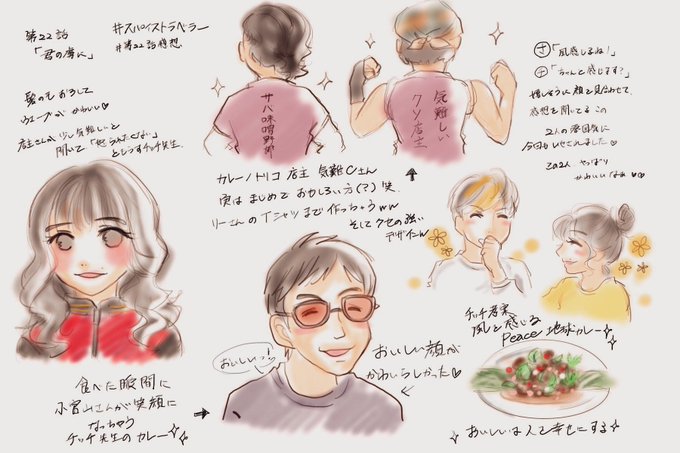 第22話
「君の虜に」
#スパイストラベラー
#第22話感想
髪の毛おろして
ウェーブが かわいい♡
店主さんが少し気難しいと
聞いて「怒られたくない」
チッチ先生
サバ味噌野郎
気難しい
クソ店主
カレーノトリコ 店主 気難Cさん
実は まじめで おもしろい方(?) 笑
リーさんの Tシャツまで 作っちゃうww
そして クセの強い
デザインw
サ「風感じるね!」
チ「ちゃんと感じます?」
嬉しそうに 顔を見合わせて
感想を聞いてる この
2人の雰囲気に
今回も いやされました♡
この2人 やっぱり
かわいいなぁ♡
おいしいっ!
おいしい顔が
かわいらしかった♡
食べた瞬間に
小宮山さんが笑顔に
なっちゃう
チッチ先生のカレー
チッチ考案
風を感じる
Peace 地球カレー
おいしいは人を幸せにする